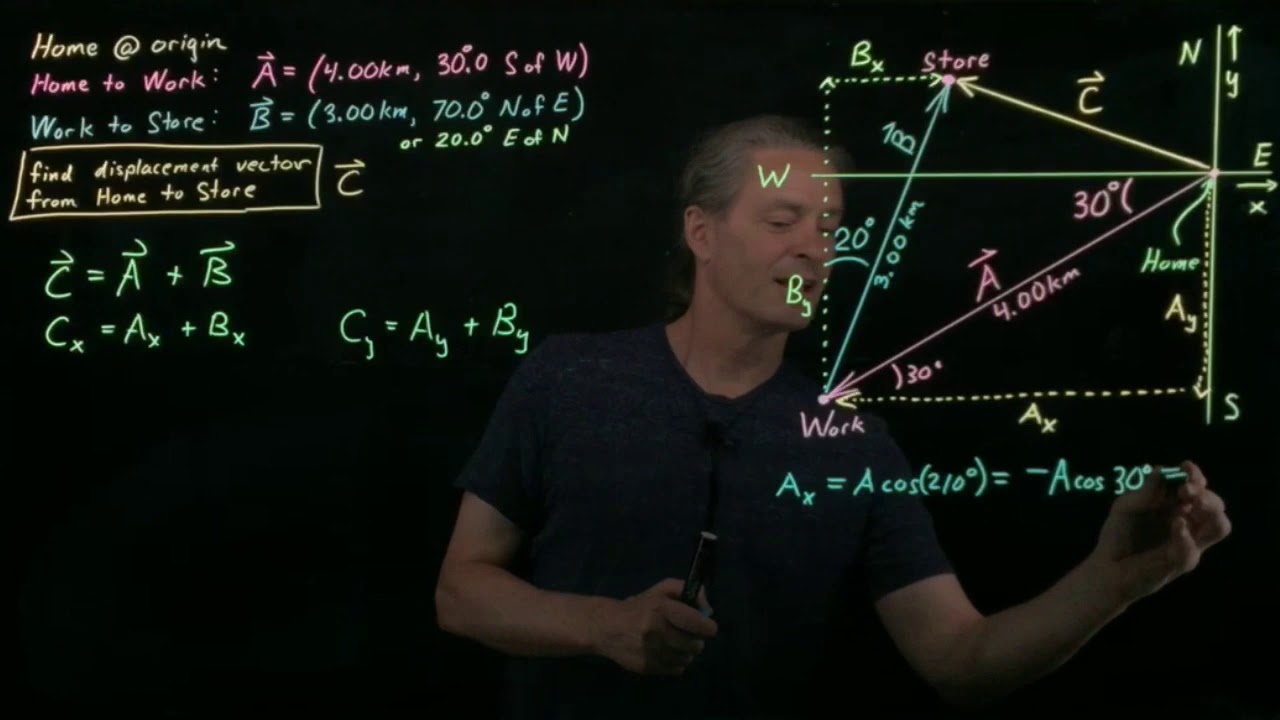 Home @ origin
Home to Work: A⃗ = (4.00km, 30°.0 S of W)
Work to Store: B⃗ = (3.00km, 70.0° N of E)
or 20.0° E of N
find displacement vector
from Home to Store
C⃗
C⃗ = A⃗ + B⃗
Cx = Ax + Bx
Cy = Ay + By
Bx
Store
N
y
C⃗
B⃗
W
E
x
30°
20°
3.00 km
Home
By
A⃗
4.00km
Ay
30°
Work
Ax
S
Ax = A cos(210°) = -A cos 30° =